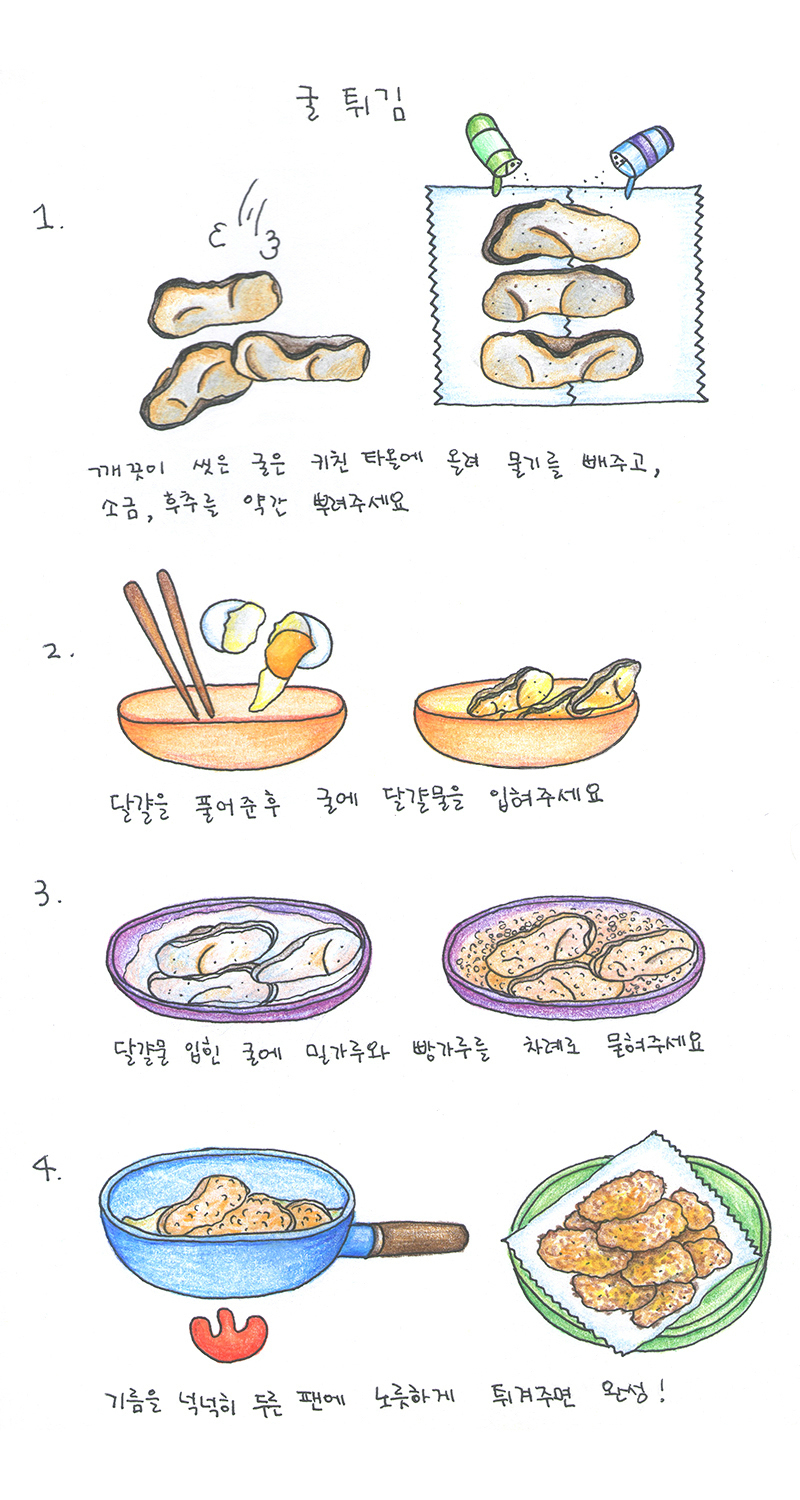 굴 튀김
1.
깨끗이 씻은 굴은 키친타올에 올려 물기를 빼주고,
소금, 후추를 약간 뿌려주세요
2.
달걀을 풀어준후 굴에 달걀물을 입혀주세요
3.
달걀물 입힌 굴에 밀가루와 빵가루를 차례로 묻혀주세요
4.
기름을 넉넉히 두른 팬에 노릇하게 튀겨주면 완성!